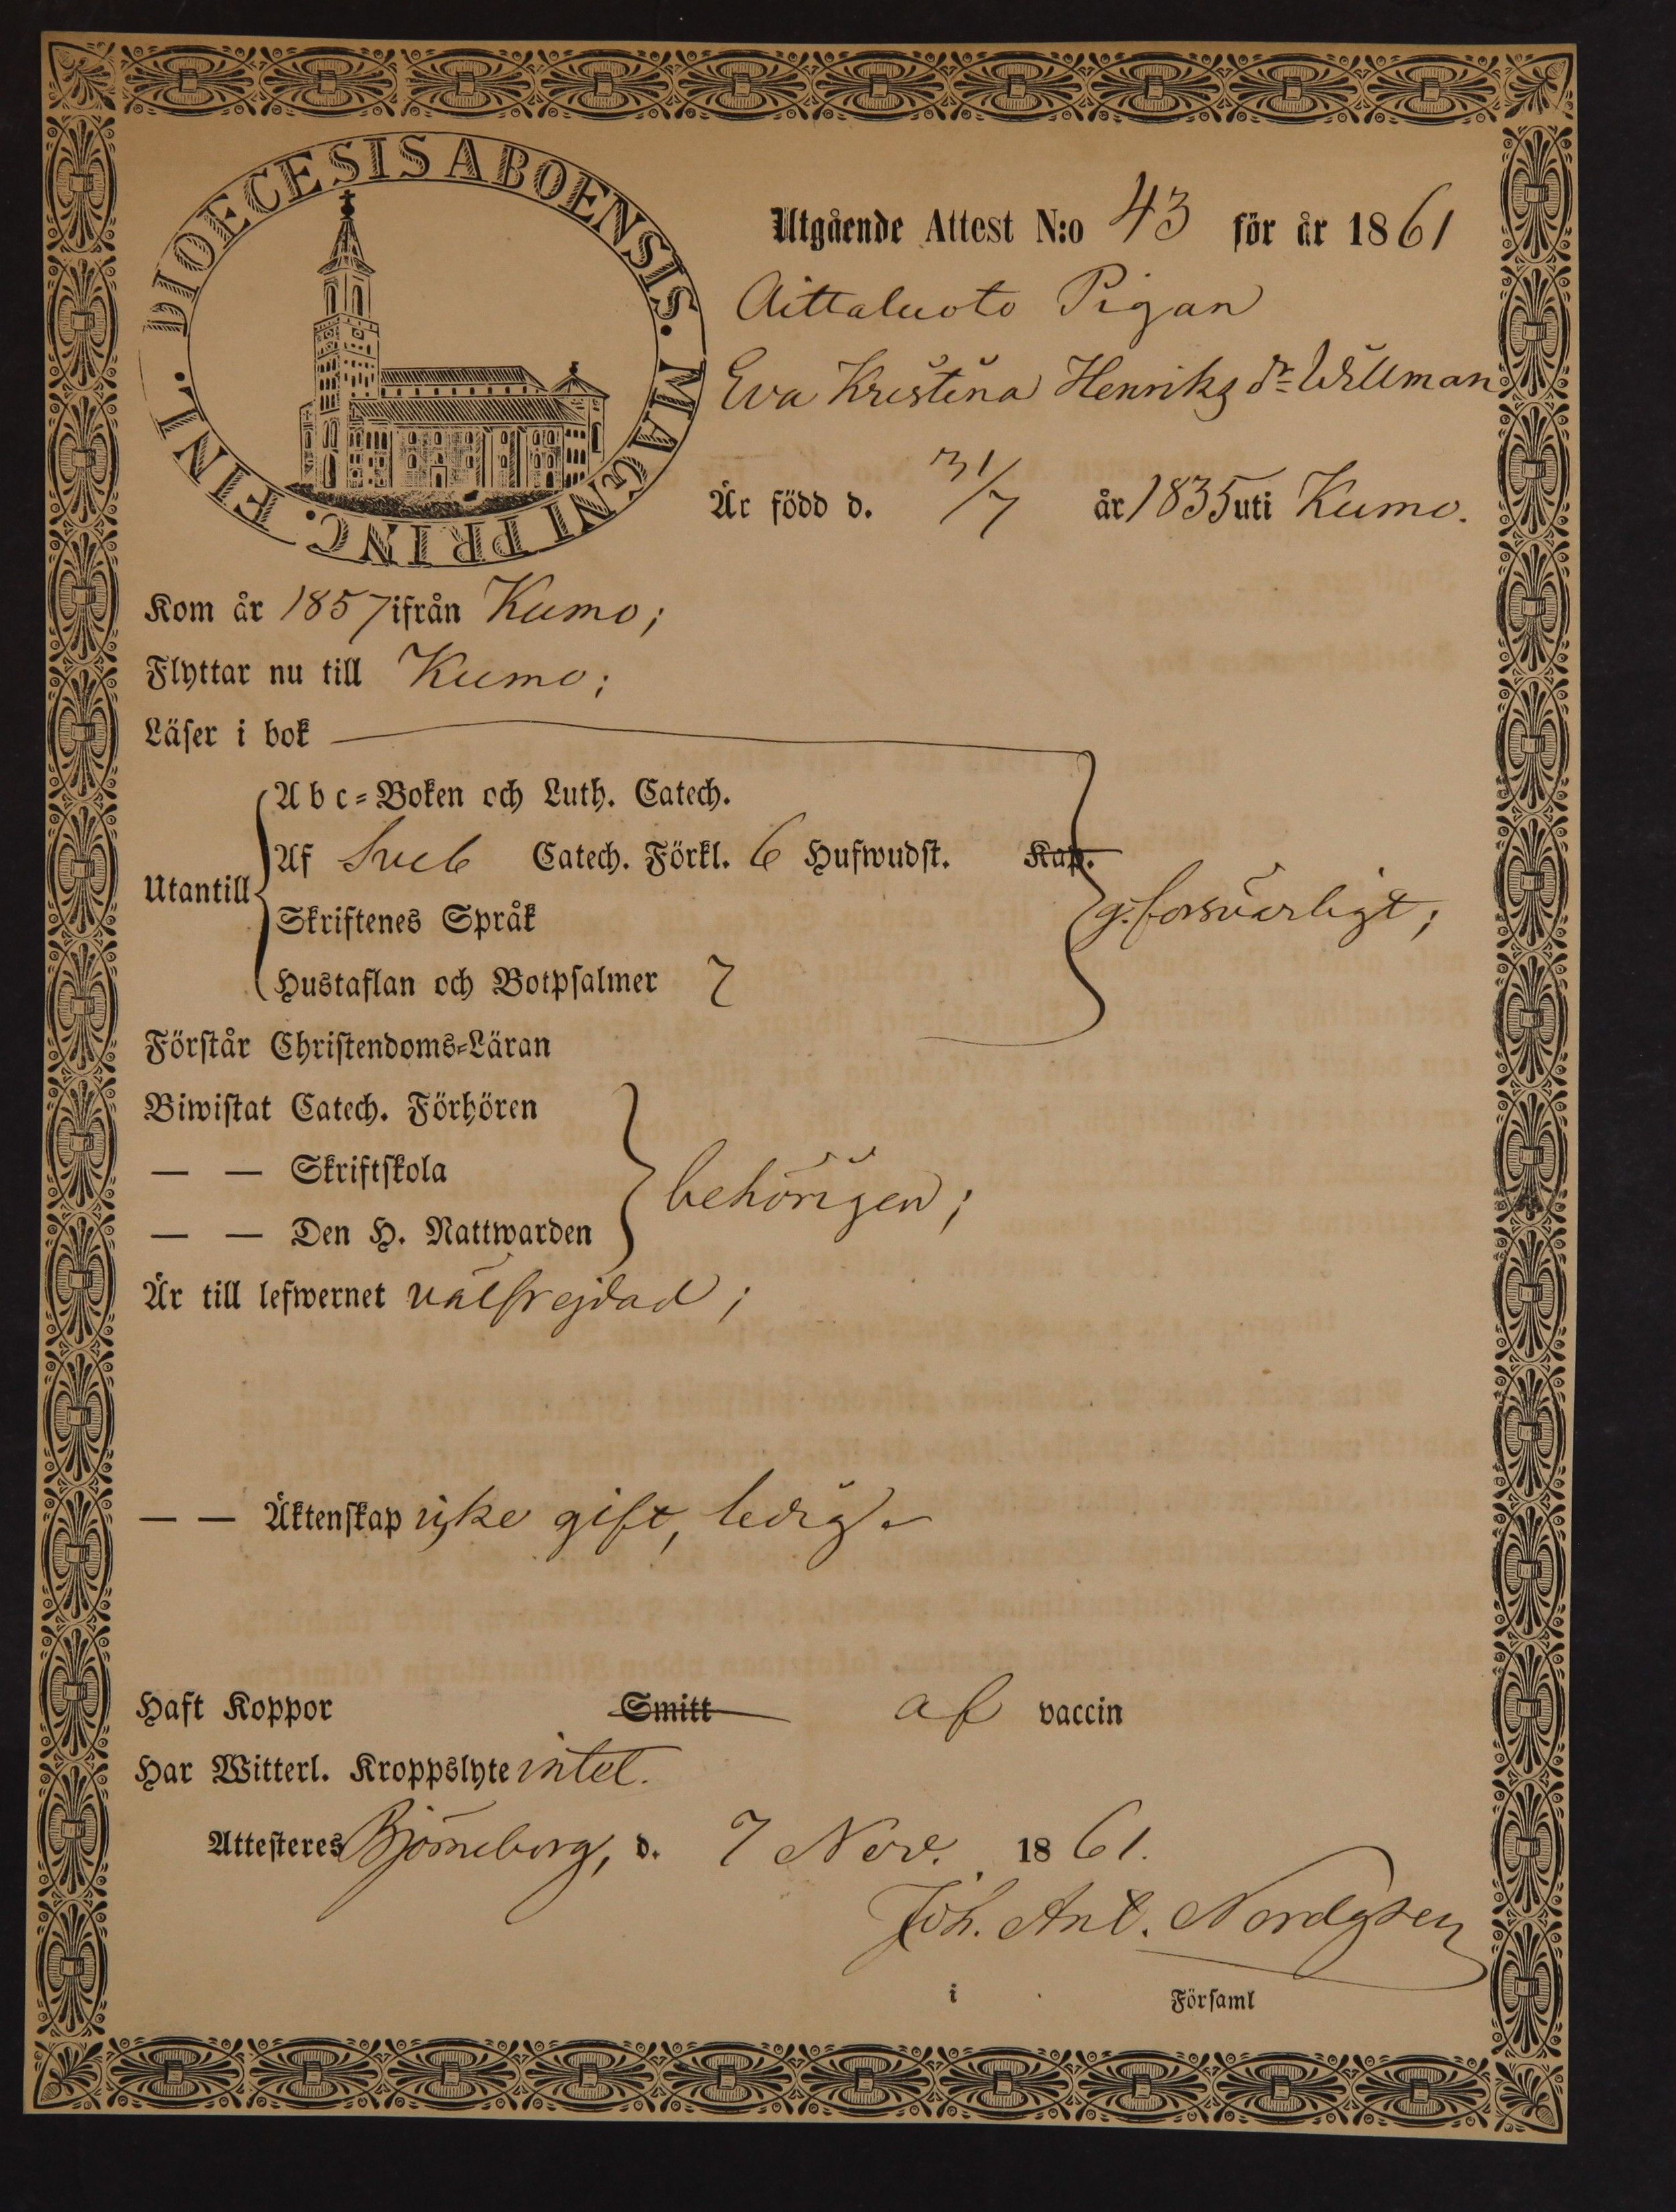 DIOECESIS ABOENSIS. MAGNI PRINC. FINL.
Utgående Attest N:o 43 för år 1861
Aittaluoto Pigan
Eva Kristina Henriks dr Willman
Är född d. 31/7 år 1835 uti Kumo.
Kom år 1857 ifrån Kumo;
Flyttar nu till Kumo;
Läser i bok
Abc-Boken och Luth. Catech.
Af Sveb Catech. Förkl. 6 Hufwudst. Kap.
Utantill
g. försvarligt;
Skriftenes Språk
Hustaflan och Botpsalmer 7
Förstår Christendoms-Läran
Biwistat Catech. Förhören
— — Skriftskola
behörigen;
— — Den H. Nattwarden
Är till lefwernet välfrejdad;
— — Äktenskap icke gift, ledig.
Haft Koppor Smitt af vaccin
Har Witterl. Kroppslyte intet.
Attesteres Björneborg, d. 7 Nov. 1861.
Joh. Ant.
i Församl